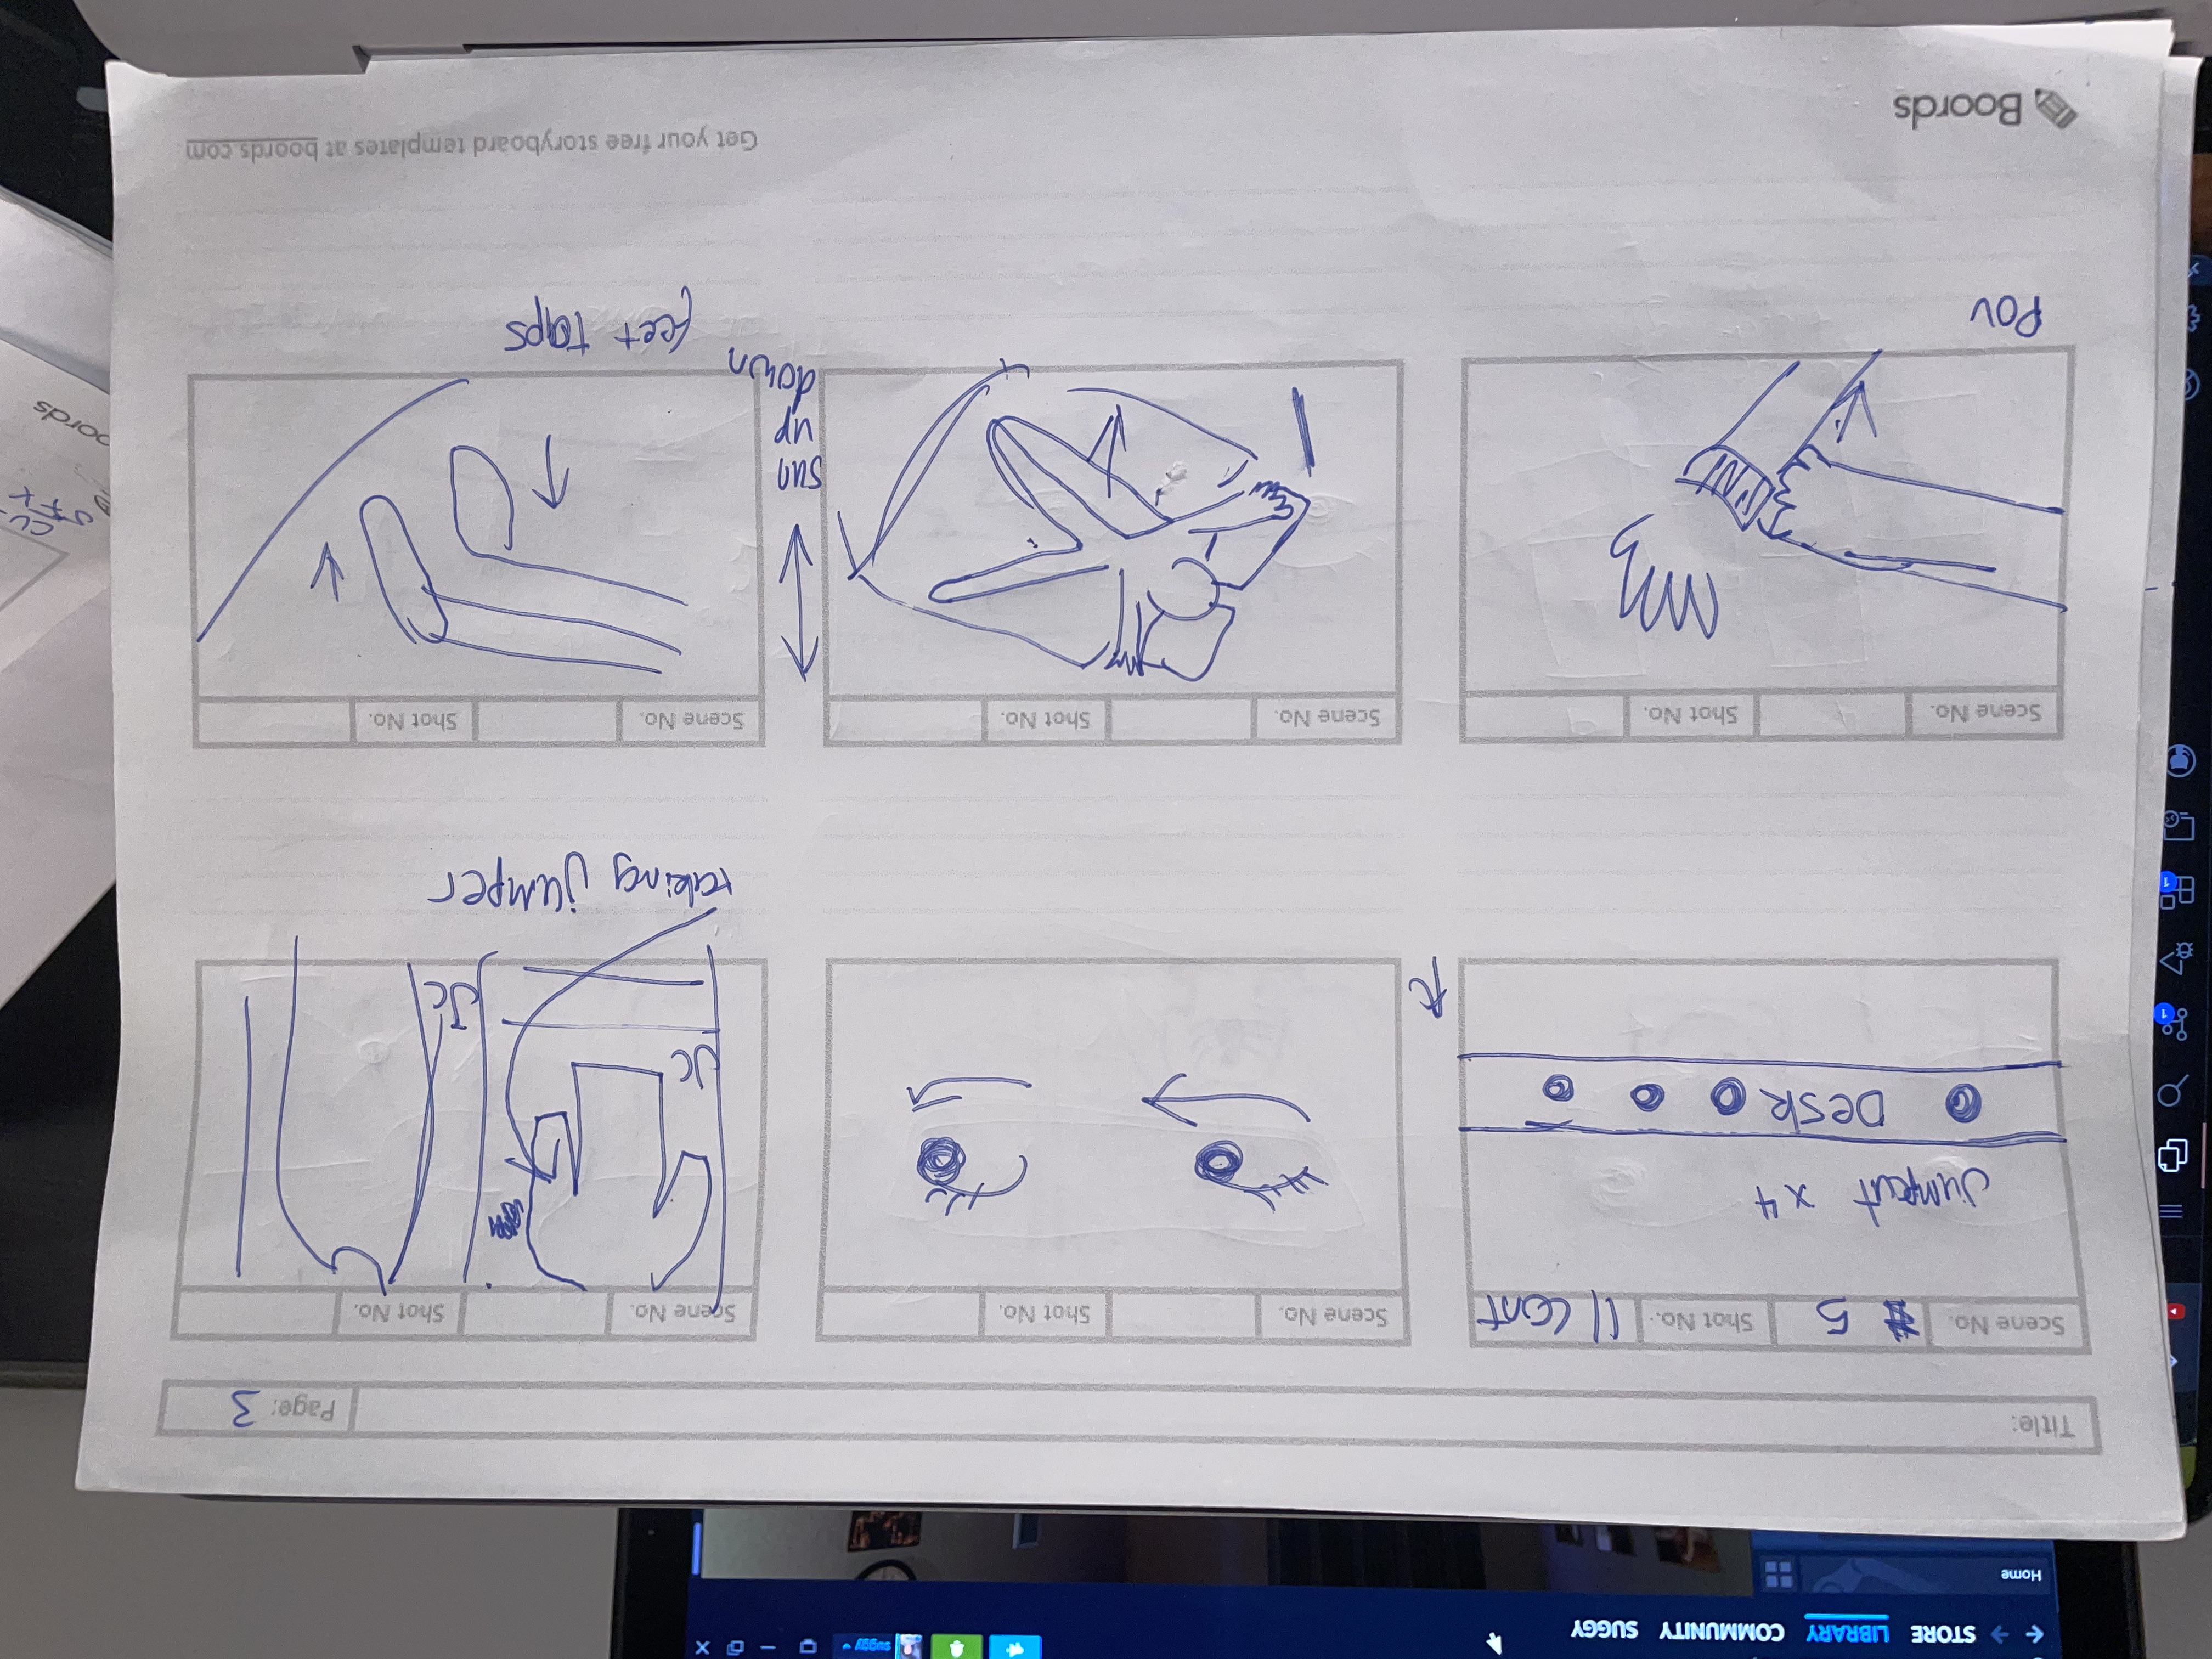 STORE LIBRARY COMMUNITY SUGGY
suggy
Home
Title:
Page: 3
Scene No. 5 Shot No. 11 cont
Jumpcut x 4
Desk
Scene No. Shot No.
Scene No. Shot No.
JC
JC
taking jumper
Scene No. Shot No.
POV
Scene No. Shot No.
sun
up
down
Scene No. Shot No.
feet taps
Get your free storyboard templates at boords.com
Boords
1
1
CU
oords